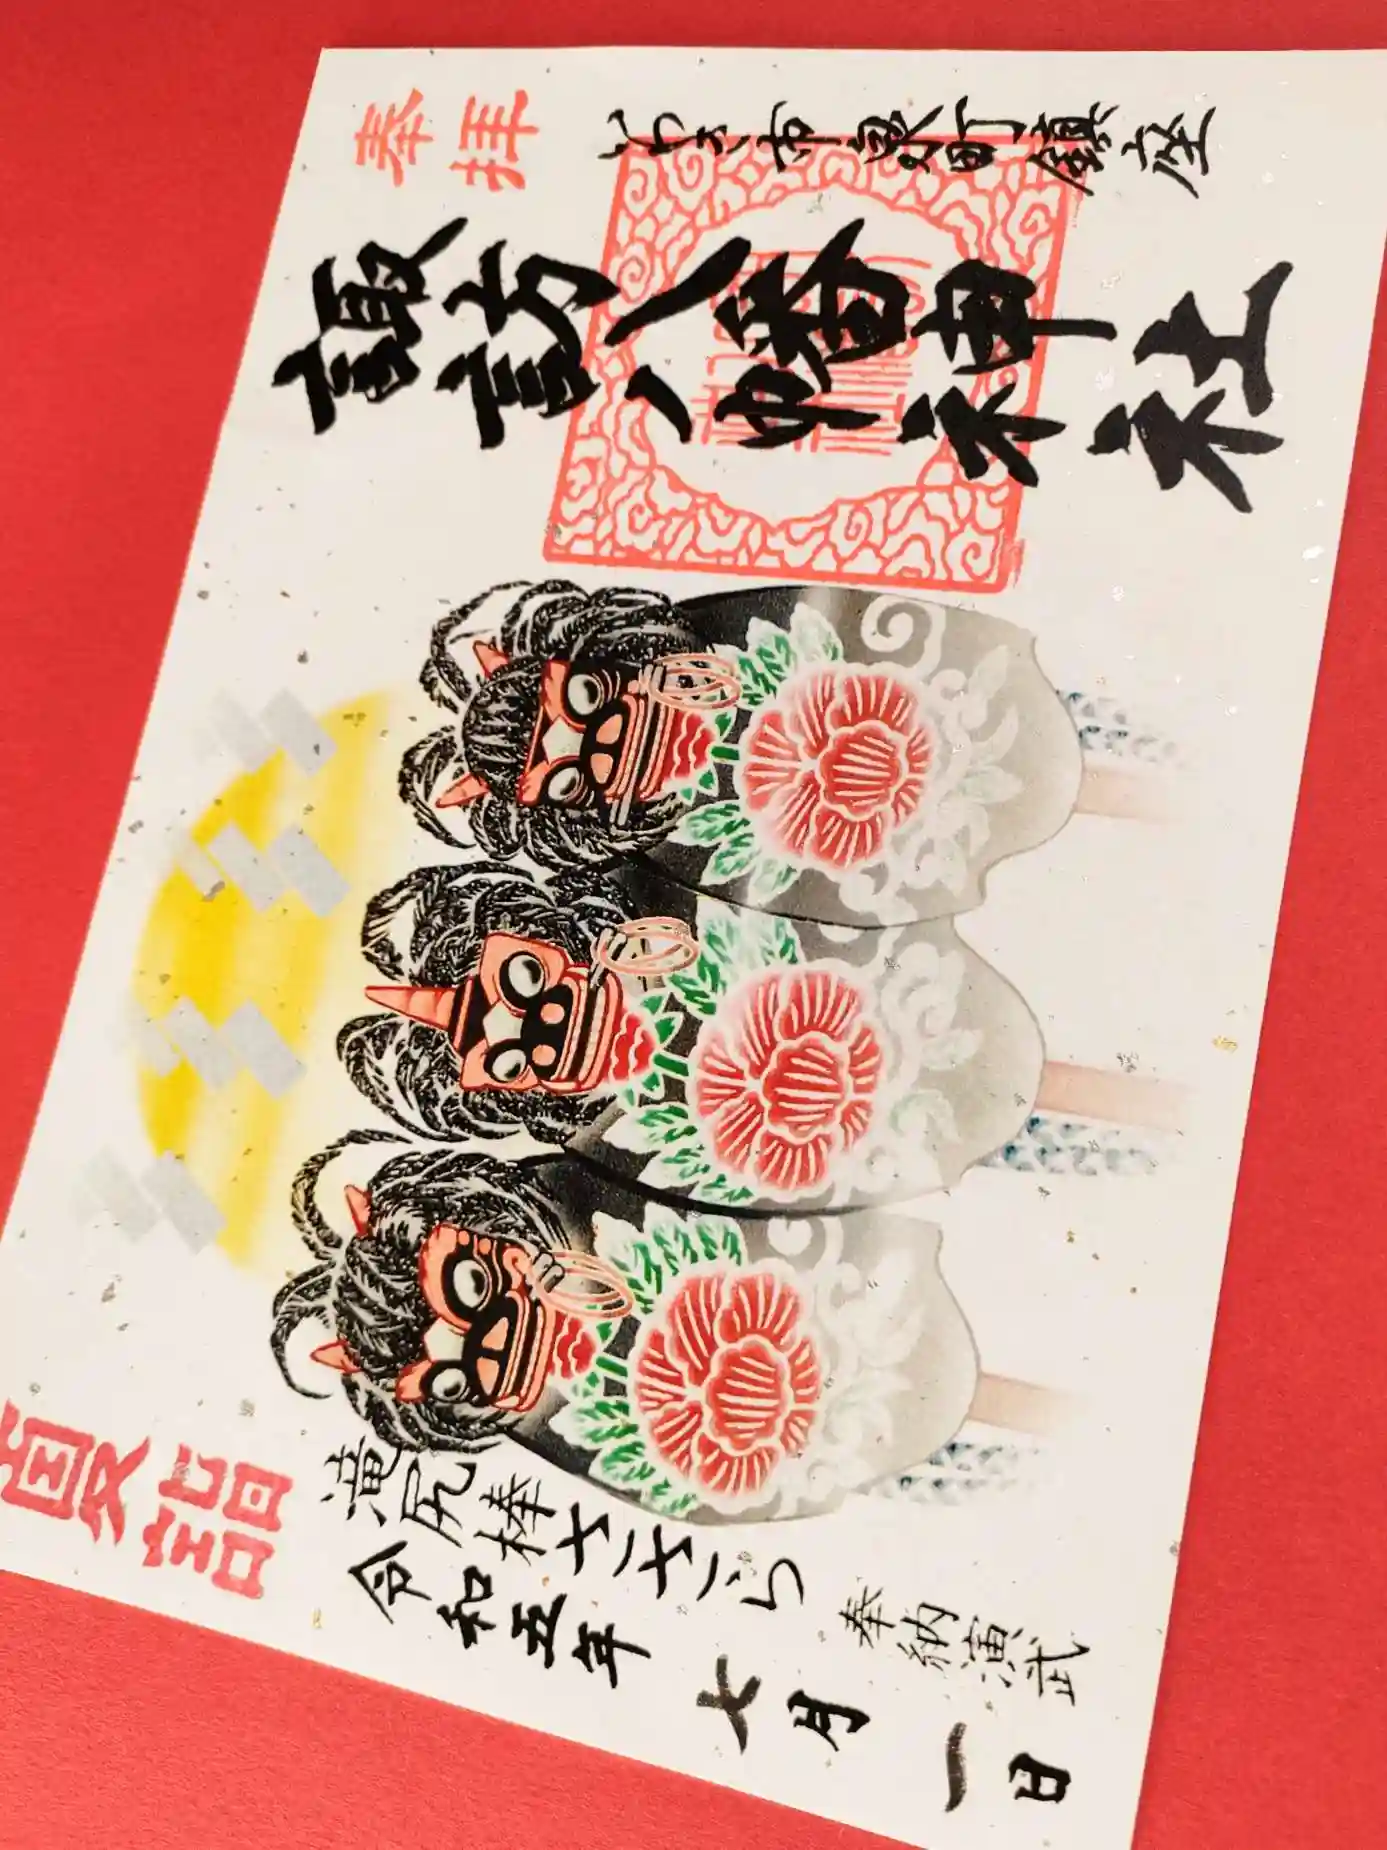 奉拝
いわき市泉町鎮座
諏訪八幡神社
夏詣
滝尻棒ささら
奉納演武
令和五年七月一日